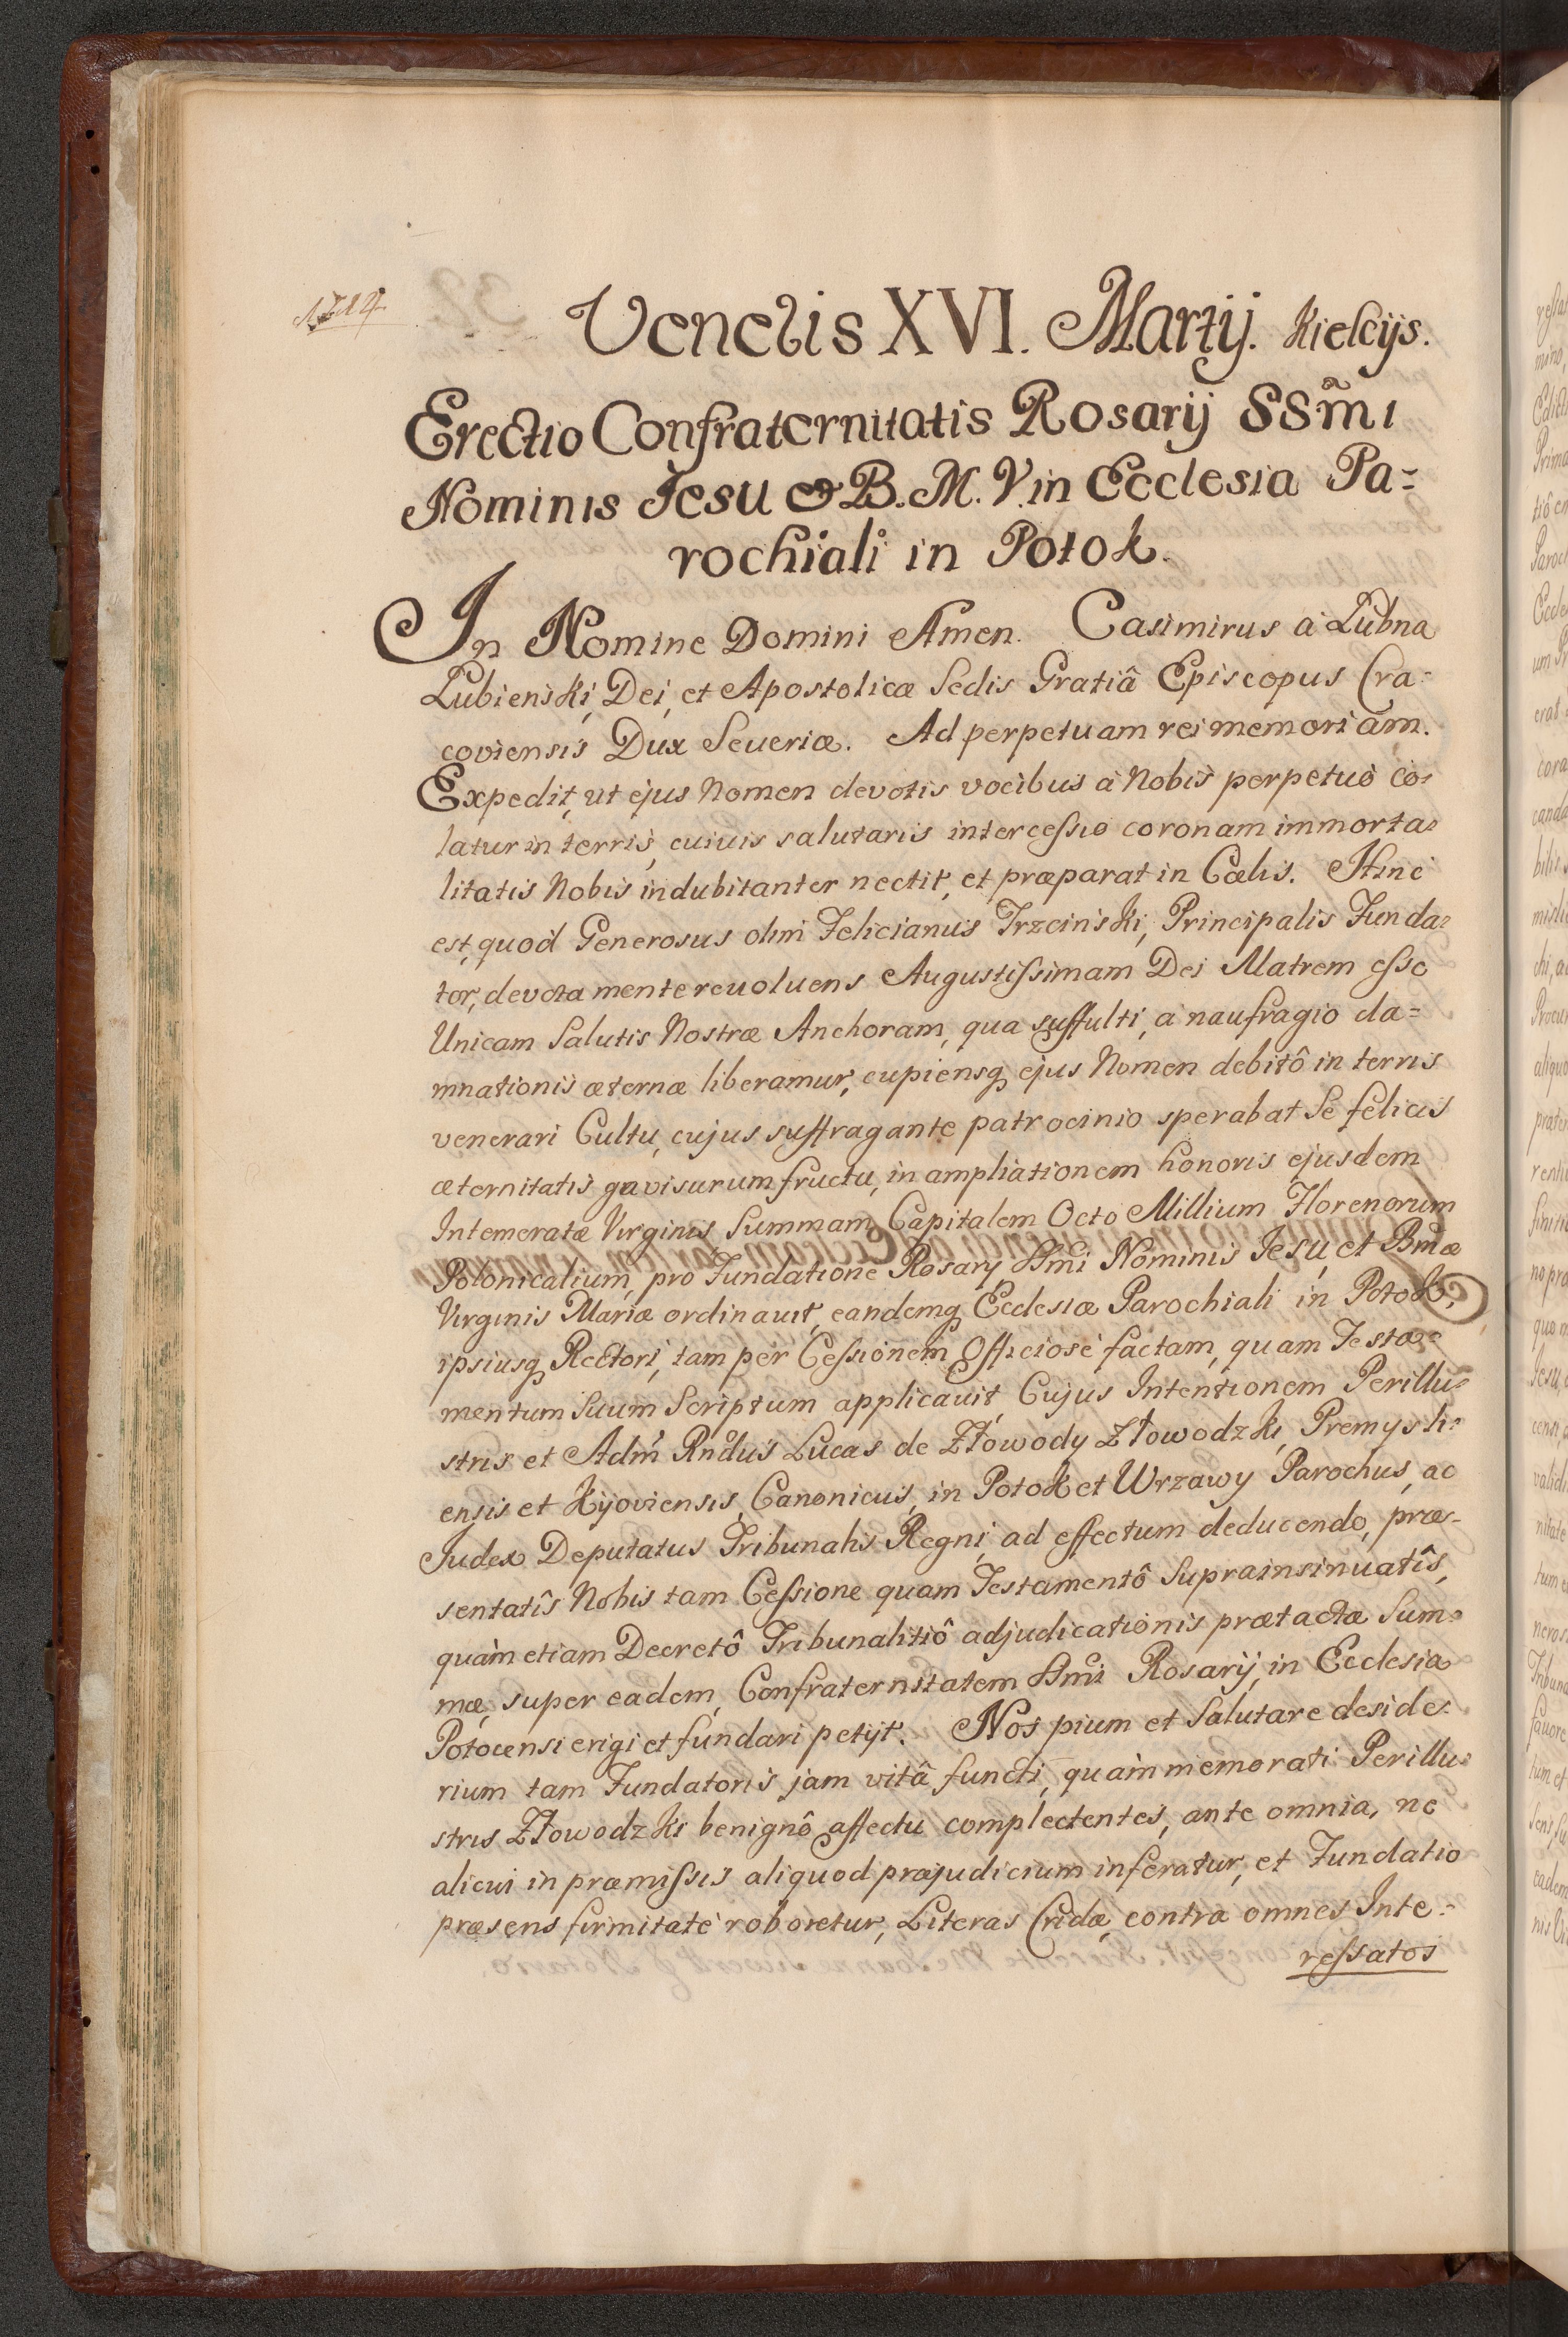 1714
Veneris XVI. Martij. Kielcijs.
Erectio Confraternitatis Rosarij SSm̃i
Nominis Jesu & B. M. V. in Ecclesia Pa=
rochiali in Potok.
In Nomine Domini Amen. Casimirus à Lubna
Lubieński, Dei, et Apostolicæ Sedis Gratiâ Episcopus Cra=
coviensis Dux Severiæ. Ad perpetuam rei memoriam.
Expedit, ut ejus Nomen devotis vocibus à Nobis perpetuò co=
latur in terris, cuiuis salutaris intercessio coronam immorta=
litatis Nobis indubitanter nectit, et præparat in Cœlis. Hinc
est, quod Generosus olim Felicianus Trzciński, Principalis Funda=
tor, devota mente reuoluens Augustissimam Dei Matrem esse
Unicam Salutis Nostræ Anchoram, qua suffulti, à naufragio da=
mnationis æternæ liberamur, cupiensq ejus Nomen debitô in terris
venerari Cultu, cujus suffragante patrocinio sperabat Se felicis
æternitatis gavisurum fructu, in ampliationem honoris ejusdem
Intemeratæ Virginis Summam Capitalem Octo Millium Florenorum
Polonicalium, pro Fundatione Rosarij SSmi Nominis Jesu, et Bmæ
Virginis Mariæ ordinauit, eandemq Ecclesiæ Parochiali in Potok,
ipsiusq Rectori, tam per Cessionem Officiosè factam, quam Testa=
mentum Suum Scriptum applicauit Cujus Intentionem Perillu=
stris et Adm̃ Rnd̃us Lucas de Złowody Złowodzki, Premysli=
ensis et Kijoviensis, Canonicus, in Potok et Wrzawy Parochus, ac
Judex Deputatus Tribunalis Regni, ad effectum deducendo, præ=
sentatîs Nobis tam Cessione quam Testamentô Suprainsinuatîs,
quàm etiam Decretô Tribunalitiô adjudicationis prætactæ Sum=
mæ, super eadem, Confraternitatem SSmi Rosarij, in Ecclesia
Potocensi erigi et fundari petijt. Nos pium et Salutare deside=
rium tam Fundatoris jam vitâ functi, quàm memorati Perillu=
stris Złowodzki benignô affectu complectentes, ante omnia, ne
alicui in præmissis aliquod præjudicium inferatur, et Fundatio
præsens firmitatè roboretur, Literas Cridæ, contra omnes Inte=
ressatos